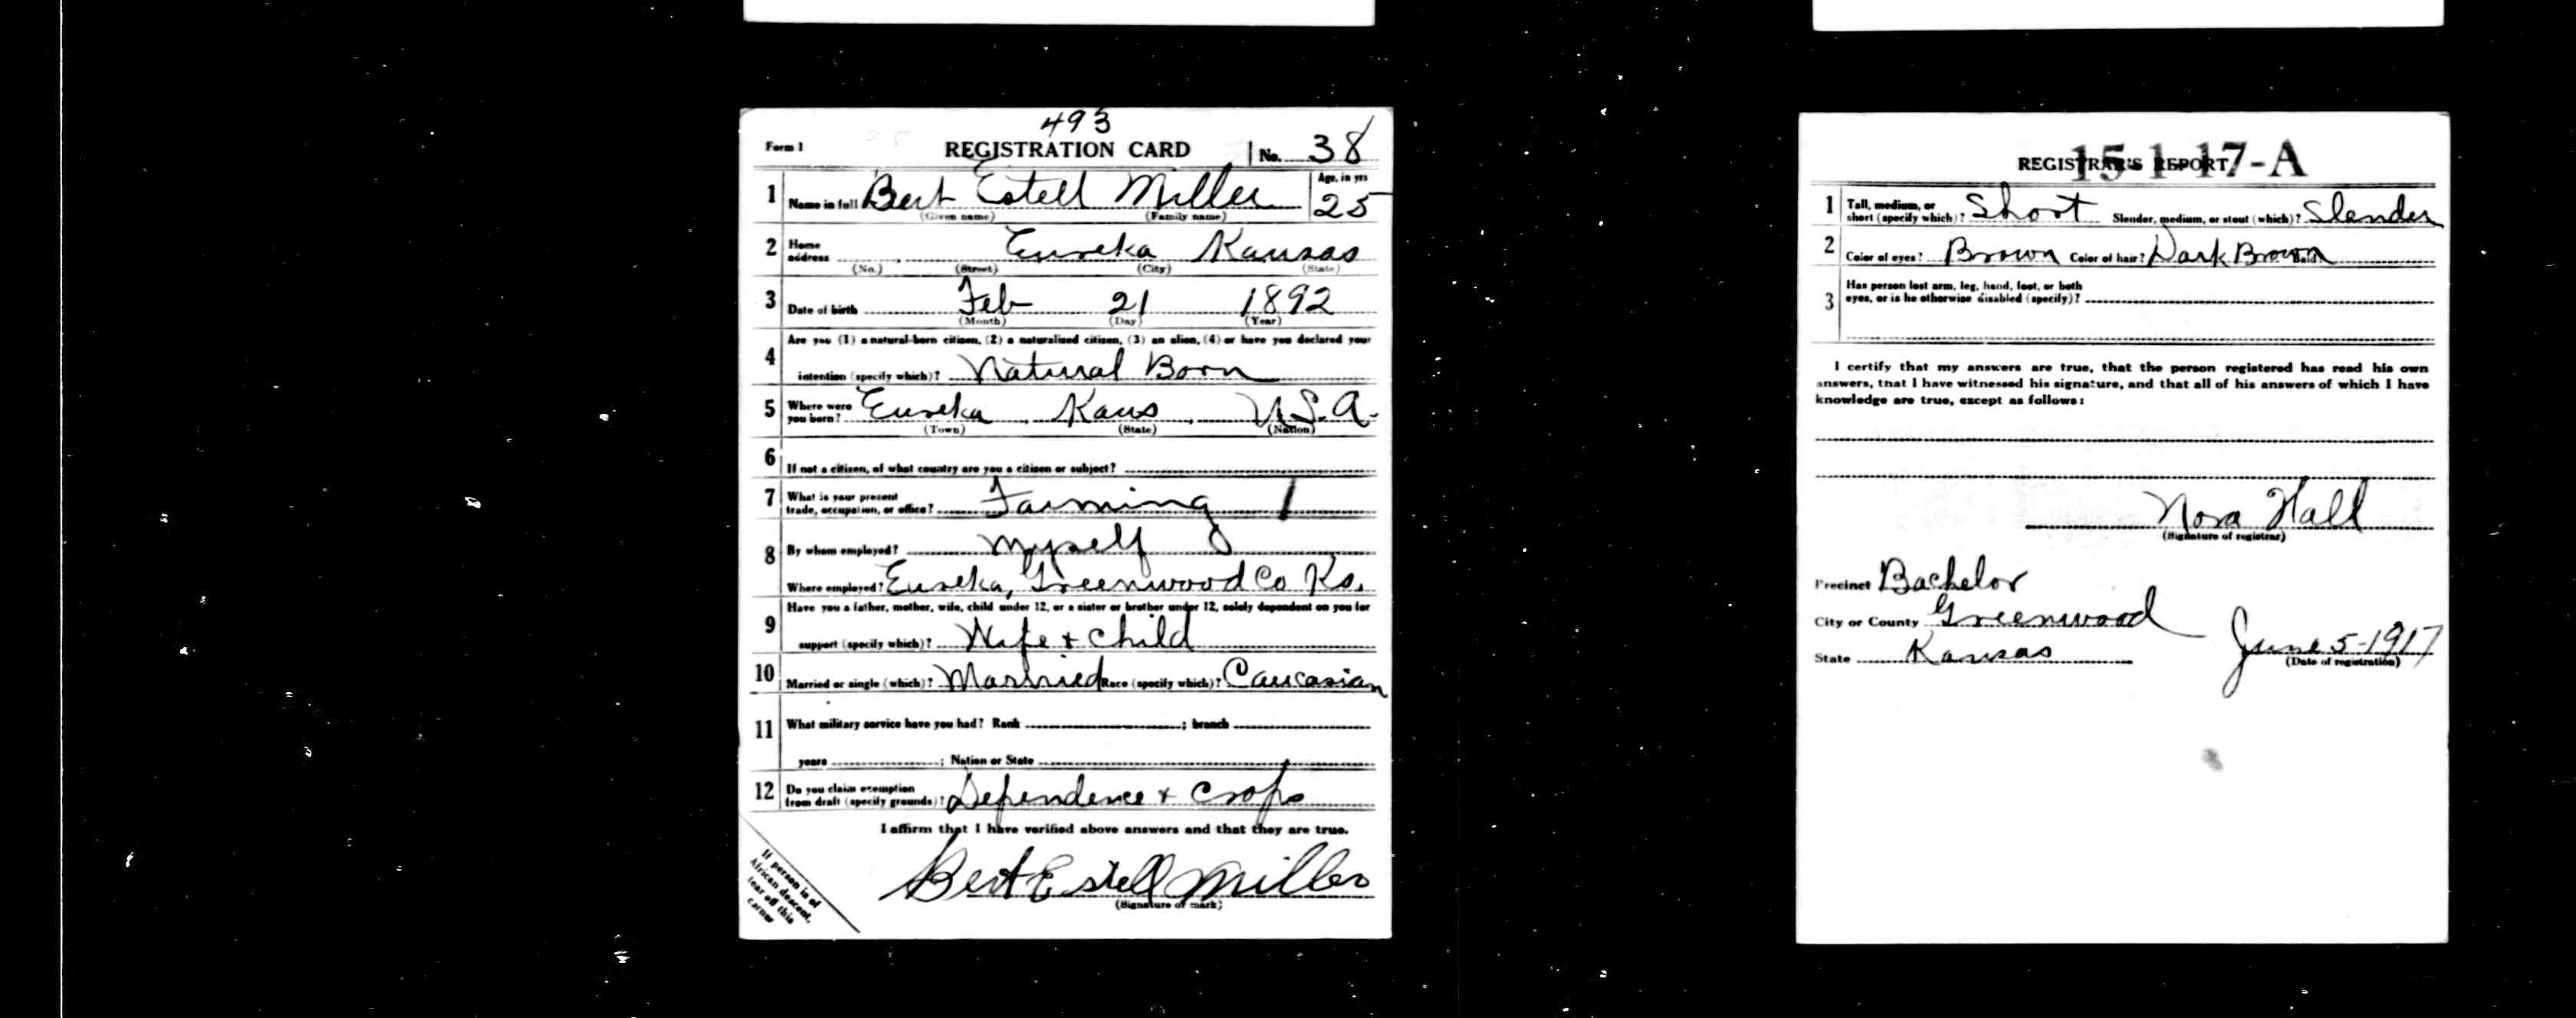 493
Form 1 REGISTRATION CARD No. 38
1 Name in full Bert Estell Miller Age, in yrs 25
(Given name) (Family name)
2 Home address Eureka Kansas
(No.) (Street) (City) (State)
3 Date of birth Feb 21 1892
(Month) (Day) (Year)
4 Are you (1) a natural-born citizen, (2) a naturalized citizen, (3) an alien, (4) or have you declared your
intention (specify which)? Natural Born
5 Where were you born? Eureka Kans U.S.A.
(Town) (State) (Nation)
6 If not a citizen, of what country are you a citizen or subject?
7 What is your present trade, occupation, or office? Farming 1
8 By whom employed? Myself
Where employed? Eureka, Greenwood Co Ks.
9 Have you a father, mother, wife, child under 12, or a sister or brother under 12, solely dependent on you for
support (specify which)? Wife + Child
10 Married or single (which)? Married Race (specify which)? Caucasian
11 What military service have you had? Rank ; branch
years ; Nation or State
12 Do you claim exemption from draft (specify grounds)? Dependence + Crops
I affirm that I have verified above answers and that they are true.
Bert Estell Miller
(Signature or mark)
If person is of
African descent,
tear off this
corner
15-1-17-A
REGISTRAR'S REPORT
1 Tall, medium, or short (specify which)? Short Slender, medium, or stout (which)? Slender
2 Color of eyes? Brown Color of hair? Dark Brown Bald
3 Has person lost arm, leg, hand, foot, or both
eyes, or is he otherwise disabled (specify)?
I certify that my answers are true, that the person registered has read his own
answers, that I have witnessed his signature, and that all of his answers of which I have
knowledge are true, except as follows:
Nora Hall
(Signature of registrar)
Precinct Bachelor
City or County Greenwood
State Kansas June 5-1917
(Date of registration)